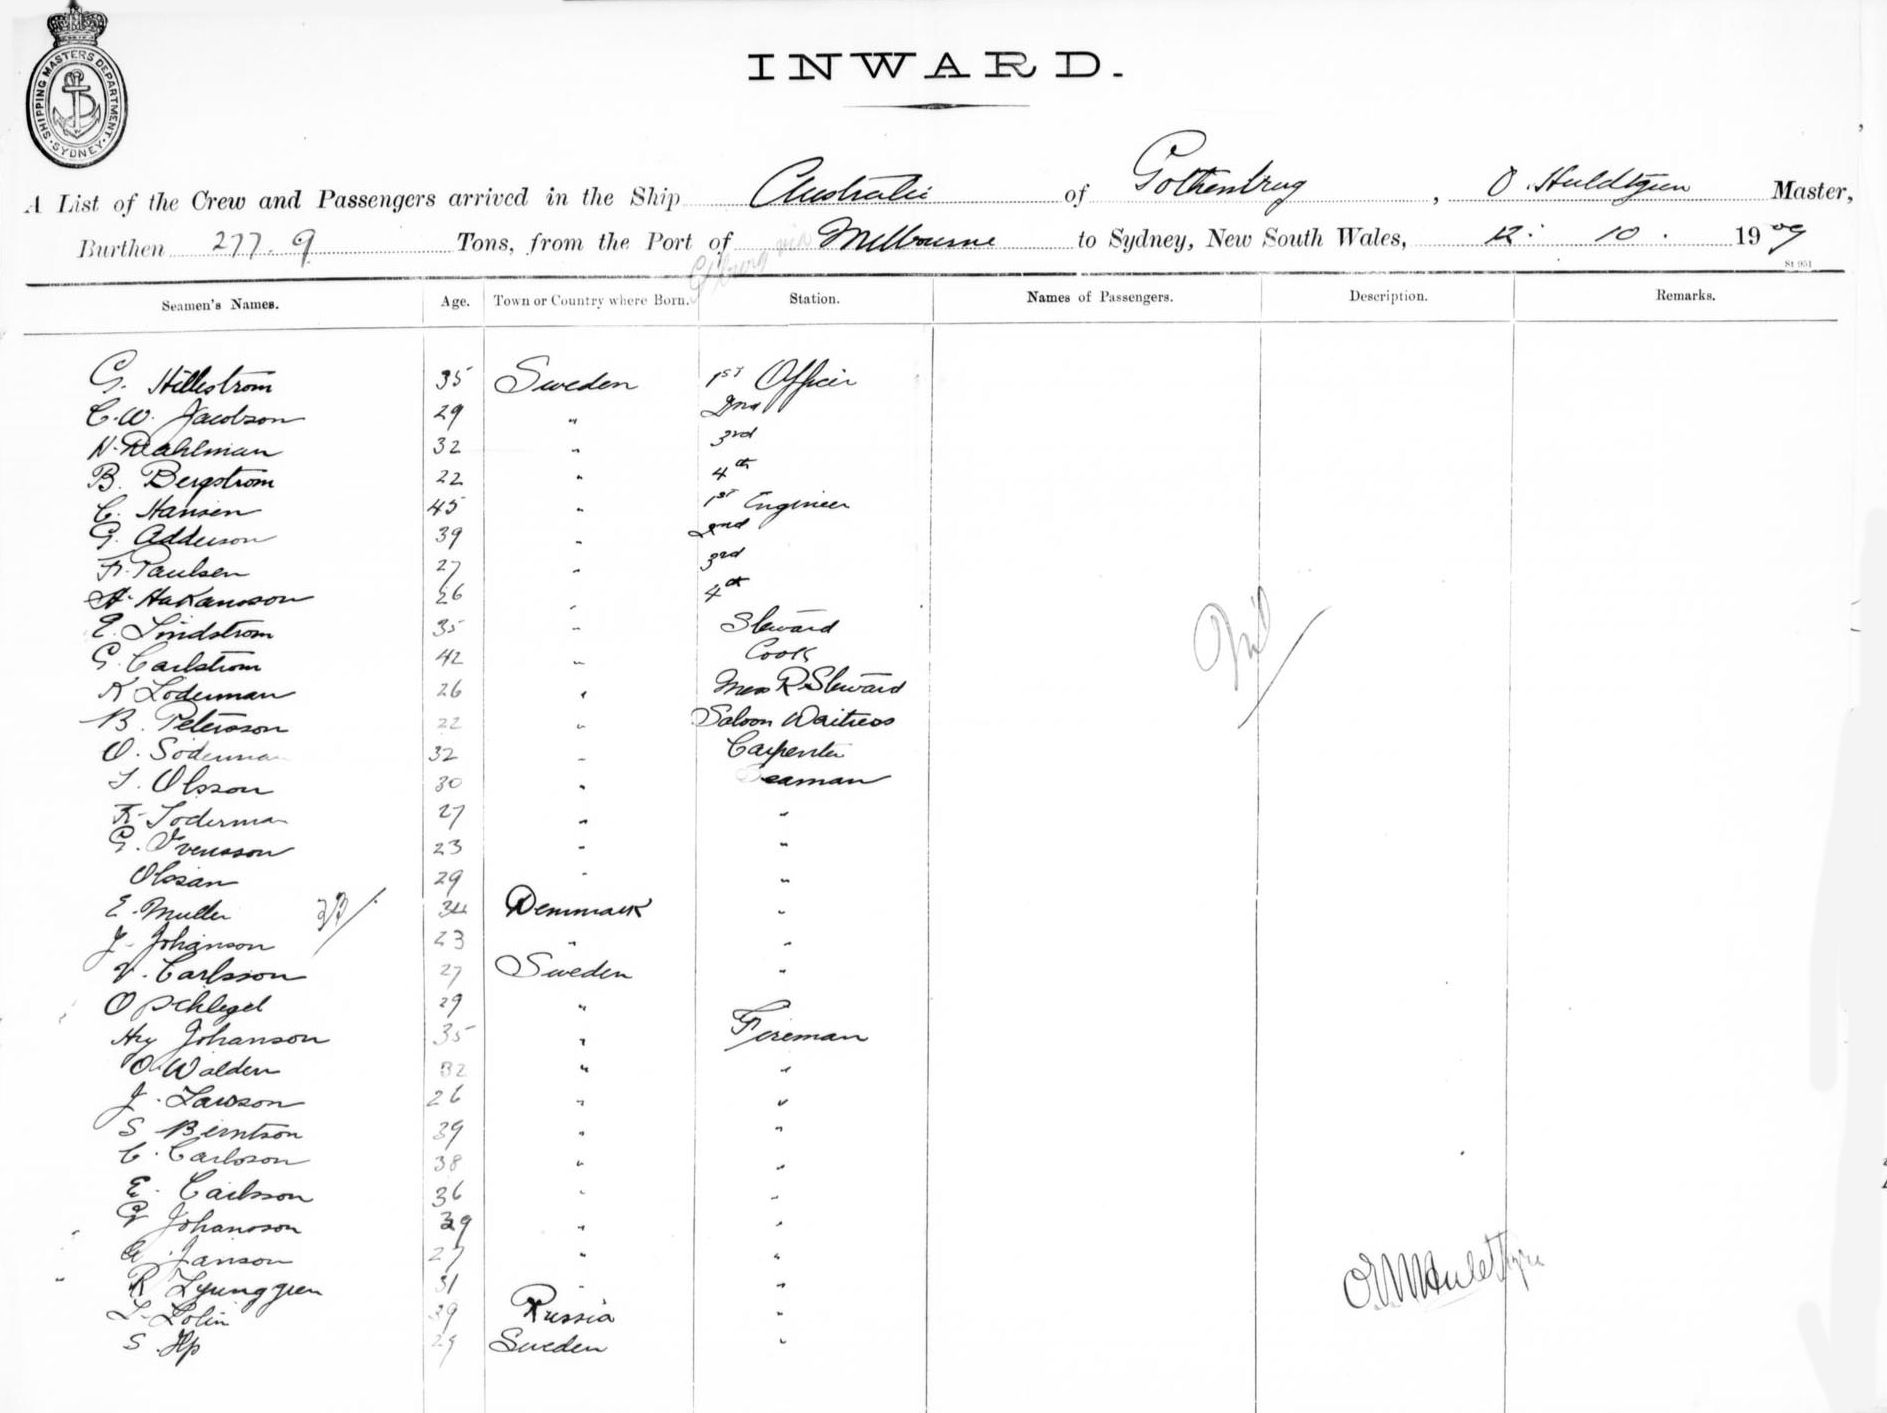 SHIPPING MASTERS DEPARTMENT
SYDNEY
INWARD.
A List of the Crew and Passengers arrived in the Ship Australic of Gothenbrug, O. Huldtgren Master,
Burthen 277.9 Tons, from the Port of via Melbourne to Sydney, New South Wales, 12. 10. 1909
St 951
Seamen's Names. Age. Town or Country where Born. Station. Names of Passengers. Description. Remarks.
G. Hillestrom 35 Sweden 1st Officer
C. W. Jacobson 29 " 2nd
N. Dahlman 32 " 3rd
B. Bergstrom 22 " 4th
C. Hansen 45 " 1st Engineer
G. Adderson 39 " 2nd
Fr. Paulsen 27 " 3rd
A. Hakansson 26 " 4th
E. Lindstrom 35 " Steward
G. Carlstrom 42 " Cook
K Loderman 26 " Mess R Steward
B. Petersson 22 " Saloon Waitress
O. Soderman 32 " Carpenter
T. Olsson 30 " Seaman
K. Soderman 27 " "
G. Svensson 23 " "
Olssan 29 " "
E. Muller 34 Denmark "
J. Johanson 23 " "
V. Carlsson 27 Sweden "
O Schlegel 29 " "
Hry Johanson 35 " Fireman
O. Walden 32 " "
J. Larsson 26 " "
S Berntson 39 " "
C. Carlsson 38 " "
E. Carlsson 36 " "
G Johansson 39 " "
A. Janson 27 " "
R Lyunggren 31 " "
L. Lolin 39 Russia "
S. Hp 29 Sweden "
Nil
32/